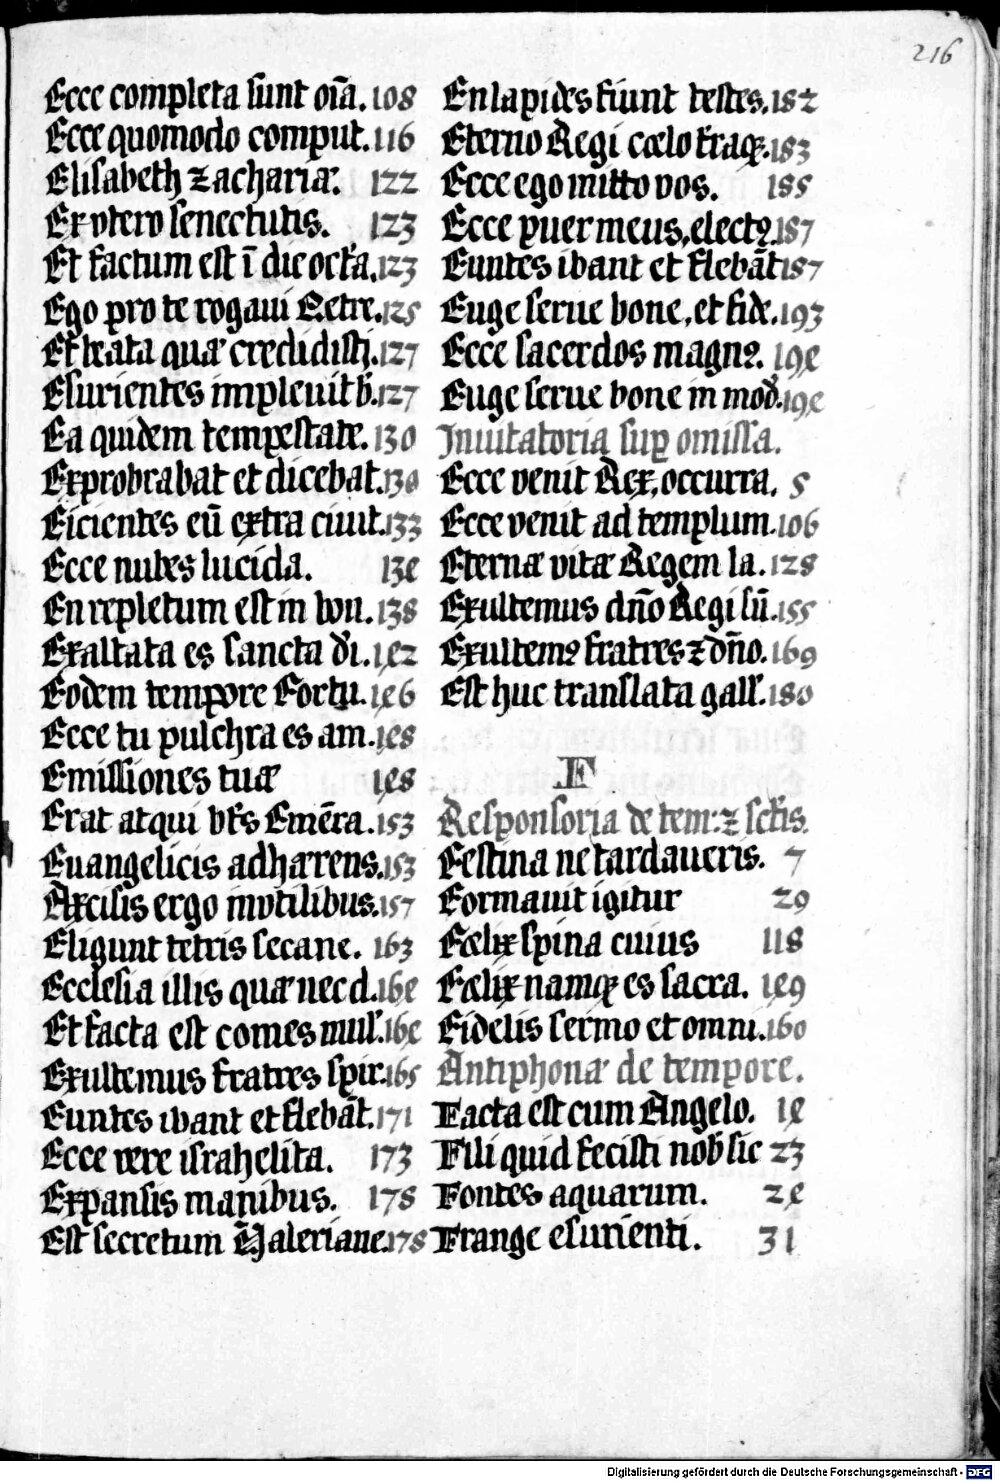 216
Ecce completa sunt oīa. 108
Ecce quomodo comput. 116
Elisabeth Zachariæ. 122
Ex vtero senectutis. 123
Et factum est ī die octa. 123
Ego pro te rogaui Petre. 125
Et beata quæ credidisti. 127
Esurientes impleuit b. 127
Ea quidem tempestate. 130
Exprobrabat et dicebat. 130
Eicientes eū extra ciuit. 133
Ecce nubes lucida. 134
En repletum est in bon. 138
Exaltata es sancta di. 142
Eodem tempore Fortu. 146
Ecce tu pulchra es am. 148
Emissiones tuæ 148
Erat atqui Emēra. 153
Euangelicis adhærens. 153
Axcisis ergo motilibus. 157
Eligunt tetris secane. 163
Ecclesia illis quæ nec d. 164
Et facta est comes mul. 164
Exultemus fratres spir. 165
Euntes ibant et flebāt. 171
Ecce vere israhelita. 173
Expansis manibus. 178
Est secretum Valeriane. 178
En lapides fiunt testes. 182
Eterno Regi cœlo fraq. 183
Ecce ego mitto vos. 185
Ecce puer meus, electꝯ. 187
Euntes ibant et flebāt 187
Euge serue bone, et fide. 193
Ecce sacerdos magnꝯ. 194
Euge serue bone in mod. 194
Inuitatoria sup omissa.
Ecce venit Rex, occurra. 5
Ecce venit ad templum. 106
Eternæ vitæ Regem la. 128
Exultemus dño Regi sū. 155
Exultemꝯ fratres z dño. 169
Est huc translata gall. 180
F
Responsoria de tem: z sctis.
Festina ne tardaueris. 7
Formauit igitur 29
Fœlix spina cuius 118
Fœlix namq es sacra. 149
Fidelis sermo et omni. 160
Antiphonæ de tempore.
Facta est cum Angelo. 14
Fili quid fecisti nob sic 23
Fontes aquarum. 24
Frange esurienti. 31
Digitalisierung gefördert durch die Deutsche Forschungsgemeinschaft - DFG